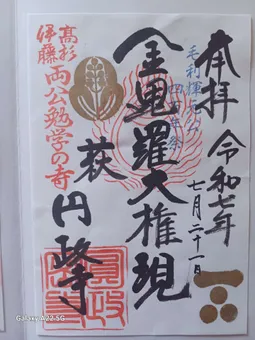 奉拝
令和七年
七月二十一日
毛利輝元公
四百年祭
金毘羅大権現
萩
円政寺
髙杉
伊藤
両公勉学の寺
Galaxy A22 5G